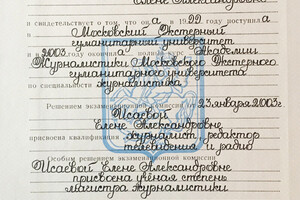 Елене Александровне
и свидетельствует о том, что он а в 1999 году поступила
Московский Экстерный
гуманитарный университет
и в 2003 окончила полный курс Академии
Журналистики Московского Экстерного
гуманитарного университета
по специальности
журналистика
Решением экзаменационной комиссии от 23 января 2003 г.
Исаевой
Елене Александровне
присвоена квалификация журналист, редактор
телевидения и радио
Особым решением экзаменационной комиссии
Исаевой Елене Александровне
присвоена ученая степень
магистра журналистики